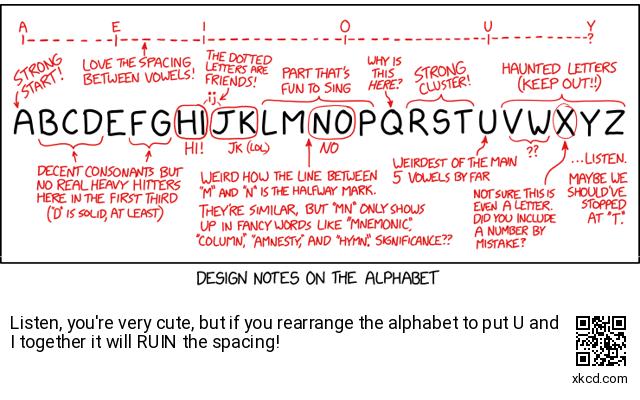 A E I O U Y
?
STRONG
START!
LOVE THE SPACING
BETWEEN VOWELS!
THE DOTTED
LETTERS ARE
FRIENDS!
ij
PART THAT'S
FUN TO SING
WHY IS
THIS
HERE?
STRONG
CLUSTER!
HAUNTED LETTERS
(KEEP OUT!!)
ABCDEFGHIJKLMNOPQRSTUVWXYZ
DECENT CONSONANTS BUT
NO REAL HEAVY HITTERS
HERE IN THE FIRST THIRD
("D" IS SOLID, AT LEAST)
HI!
JK (LOL)
NO
WEIRD HOW THE LINE BETWEEN
"M" AND "N" IS THE HALFWAY MARK.
THEY'RE SIMILAR, BUT "MN" ONLY SHOWS
UP IN FANCY WORDS LIKE "MNEMONIC,"
"COLUMN," "AMNESTY," AND "HYMN." SIGNIFICANCE??
WEIRDEST OF THE MAIN
5 VOWELS BY FAR
??
NOT SURE THIS IS
EVEN A LETTER.
DID YOU INCLUDE
A NUMBER BY
MISTAKE?
...LISTEN.
MAYBE WE
SHOULD'VE
STOPPED
AT "T."
DESIGN NOTES ON THE ALPHABET
Listen, you're very cute, but if you rearrange the alphabet to put U and
I together it will RUIN the spacing!
xkcd.com